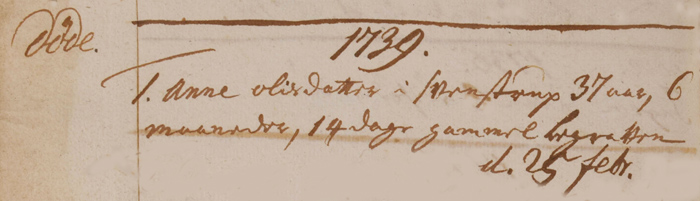 døde.
1739.
1. Anne olisdatter i Svenstrup 37 aar, 6
maaneder, 14 dage gammel begraffven
d. 25 febr.